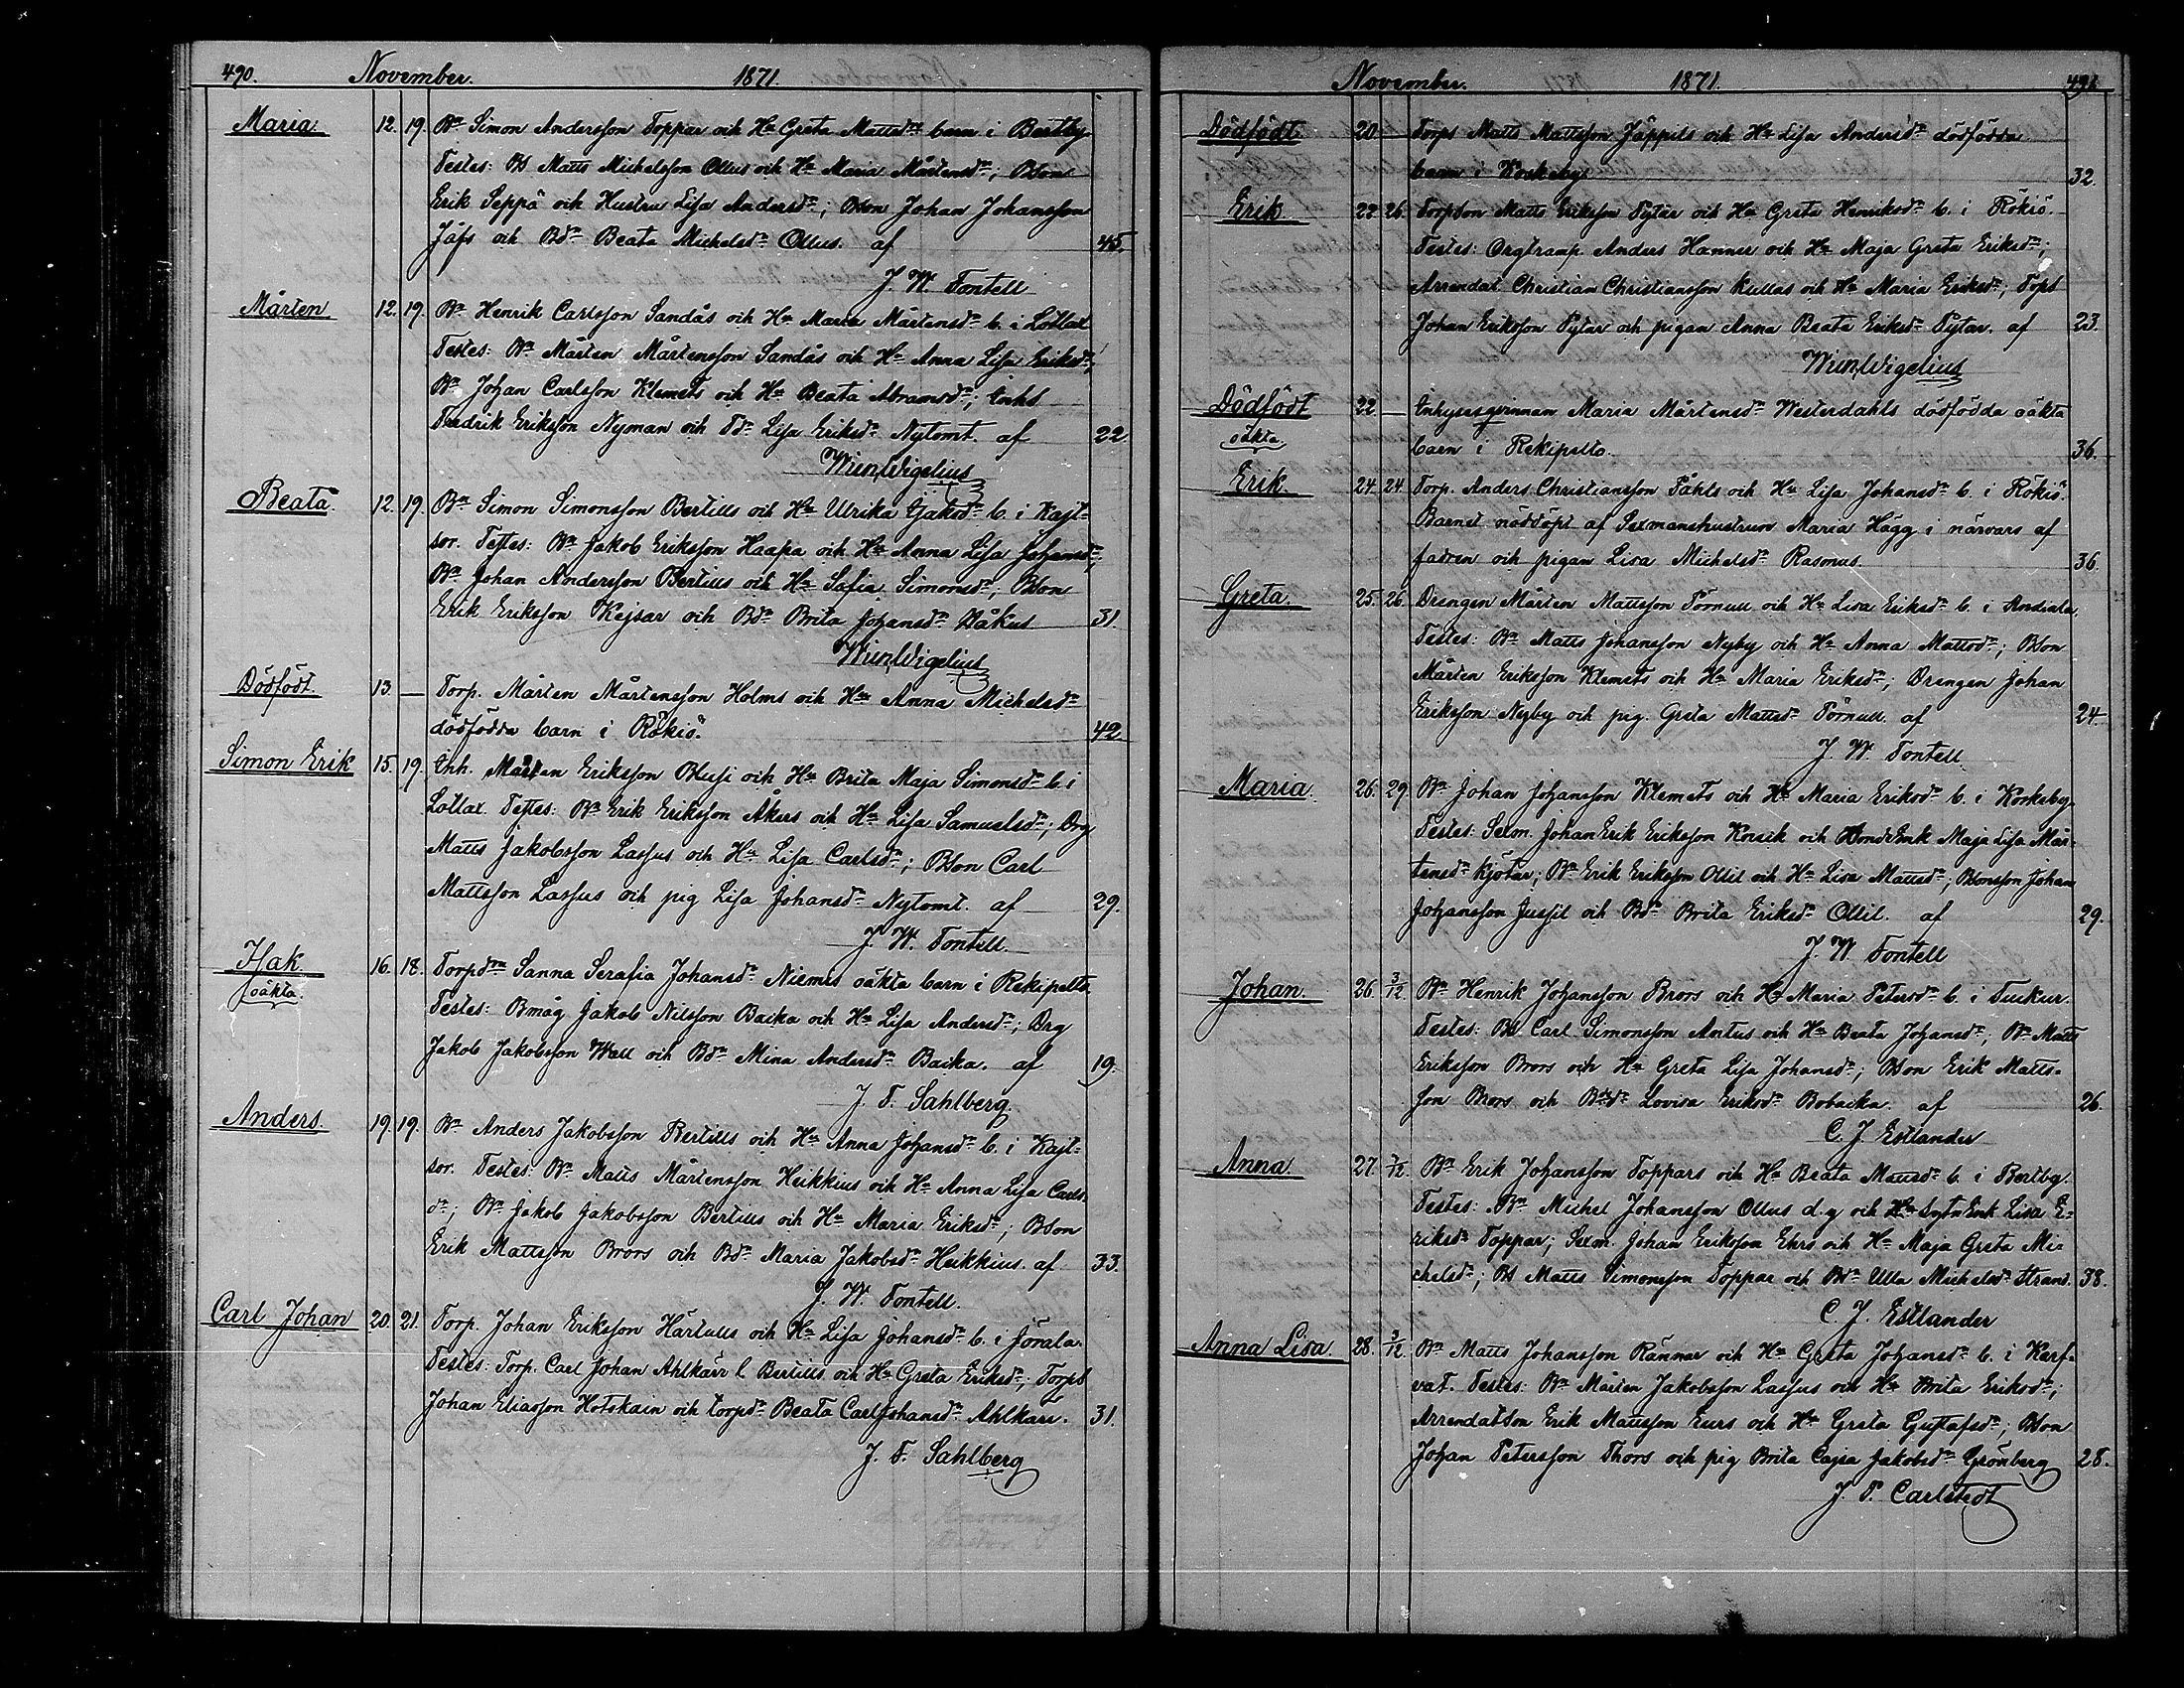 490. November. 1871.
Maria 12. 19. Bn Simon Andersson Toppar och Hu Greta Mattsdr barn i Bertby
Testes: Bd Matts Michelsson Ollus och Hu Maria Mårtensdr; Bson
Erik Seppä och Hustru Lisa Andersdr; Bson Johan Johansson
Jåfs och Bdr Beata Michelsdr Ollus. af 45.
J. W. Fontell
Mårten 12. 19. Bn Henrik Carlsson Sandås och Hu Maria Mårtensdr b. i Lotlax
Testes: Bn Mårten Mårtensson Sandås och Hu Anna Lisa Eriksdr;
Bn Johan Carlsson Klemets och Hu Beata Abramsdr; Enkl
Fredrik Eriksson Nyman och Tdr Lisa Eriksdr Nytomt. af 22
Wigelius
Beata. 12. 19. Bn Simon Simonsson Bertills och Hu Ulrika Isaksdr b. i Kajt-
sor. Testes: Bn Jakob Eriksson Haapa och Hu Anna Lisa Johansdr;
Bn Johan Andersson Bertills och Hu Sofia Simonsdr; Bson
Erik Eriksson Kejsar och Bdr Brita Johansdr Båkus 31.
Wigelius
Dödfödt. 13. — Torp. Mårten Mårtensson Holms och Hu Anna Michelsdr
dödfödda barn i Rökiö. 42.
Simon Erik 15. 19. Inh. Mårten Eriksson Blusi och Hu Brita Maja Simonsdr b. i
Lotlax. Testes: Bn Erik Eriksson Åkers och Hu Lisa Samuelsdr; Drg
Matts Jakobsson Lassus och Hu Lisa Carlsdr; Bson Carl
Mattsson Lassus och pig Lisa Johansdr Nytomt. af 29.
J. W. Fontell.
Isak 16. 18. Torpdrn Sanna Serafia Johansdr Niemis oäkta barn i Rekipelto
oäkta. Testes: Bmåg Jakob Nilsson Backa och Hu Lisa Andersdr; Drg
Jakob Jakobsson Wall och Bdr Mina Andersdr Backa. af 19.
J. F. Sahlberg.
Anders. 19. 19. Bn Anders Jakobsson Bertills och Hu Anna Johansdr b. i Kajt-
sor. Testes: Bn Matts Mårtensson Heikkius och Hu Anna Lisa Carls-
dr; Bn Jakob Jakobsson Bertills och Hu Maria Eriksdr; Bson
Erik Mattsson Brors och Bdr Maria Jakobsdr Heikkius. af 33.
J. W. Fontell.
Carl Johan 20. 21. Torp. Johan Eriksson Härtulls och Hu Lisa Johansdr b. i Jörala.
Testes: Torp. Carl Johan Ahlkärr l Bertills och Hu Greta Eriksdr; Torps
Johan Eliasson Hotokain och torpdr Beata CarlJohansdr Ahlkärr. 31.
J. F. Sahlberg
November. 1871. 491
Dödfödt 20. — Torps Matts Mattsson Jäppils och Hu Lisa Andersdr dödfödda
barn i Kockeby 32.
Erik 22 26. Torpson Matts Eriksson Pytar och Hu Greta Henriksdr b. i Rökiö.
Testes: Orgtramp Anders Hammer och Hu Maja Greta Eriksdr;
Arrendat Christian Christiansson Kullas och Hu Maria Eriksdr; Tops
Johan Eriksson Pytar och pigan Anna Beata Eriksdr Pytar. af 23.
Wigelius
Dödfödt 22. — Inhysesqvinnan Maria Mårtensdr Westerdahls dödfödda oäkta
oäkta barn i Rekipelto. 36.
Erik. 24. 24. Torp. Anders Christiansson Påhls och Hu Lisa Johansdr b. i Rökiö.
Barnet nöddöpt af Sexmanshustrun Maria Hägg i närvaro af
fadren och pigan Lisa Michelsdr Rasmus. 36.
Greta. 25. 26. Drengen Mårten Mattsson Törnull och Hu Lisa Eriksdr b. i Andiala,
Testes: Bn Matts Johansson Nyby och Hu Anna Mattsdr; Bson
Mårten Eriksson Klemets och Hu Maria Eriksdr; Drengen Johan
Eriksson Nyby och pig. Greta Mattsdr Törnull. af 24.
J. W. Fontell.
Maria. 26. 29. Bn Johan Johansson Klemets och Hu Maria Eriksdr b. i Korkeby
Testes: Sexm. Johan Erik Eriksson Korsik och Bondenk Maja Lisa Mår-
tensdr Kjötar; Bn Erik Eriksson Ollil och Hu Lisa Mattsdr; Bsonsson Johan
Johansson Jussil och Bdr Brita Eriksdr Ollil. af 29.
J. W. Fontell
Johan. 26. 3/12. Bn Henrik Johansson Brors och Hu Maria Petersdr b. i Tuckur.
Testes: Bd Carl Simonsson Antus och Hu Beata Johansdr; Bn Matts
Eriksson Brors och Hu Greta Lisa Johansdr; Bson Erik Matts-
son Brors och Bdr Lovisa Eriksdr Bobacka. af 26.
C. J. Estlander
Anna 27. 3/12. Bn Erik Johansson Toppars och Hu Beata Mattsdr b. i Bertby.
Testes: Bn Michel Johansson Ollus d. y och Sytn Enk Lisa E-
riksdr Toppar; Sexm. Johan Eriksson Ehrs och Hu Maja Greta Mi-
chelsdr; Bd Matts Simonsson Toppar och Bdr Ulla Michelsdr Strand. 38.
C. J. Estlander
Anna Lisa 28. 3/12. Bn Matts Johansson Rännar och Hu Greta Johansdr b. i Karf-
vat. Testes: Bn Mårten Jakobsson Lassus och Hu Brita Eriksdr;
Arrendatson Erik Mattsson Eurs och Hu Greta Gustafsdr; Bson
Johan Petersson Thors och pig Brita Cajsa Jakobsdr Grönberg 28.
J. P. Carlstedt